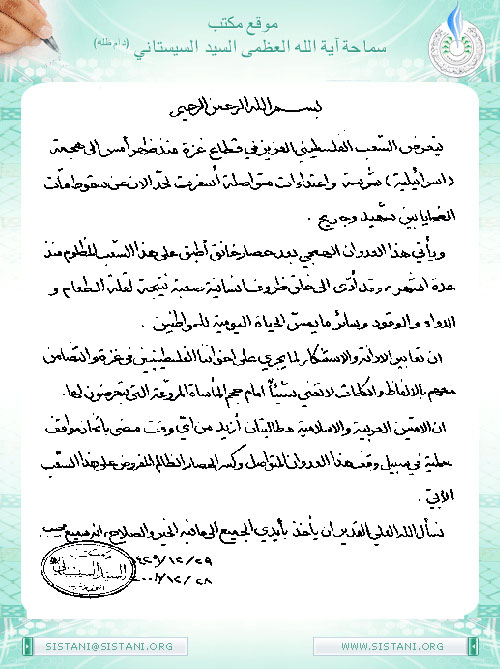 موقع مكتب
سماحة آية الله العظمى السيد السيستاني (دام ظله)
بسم الله الرحمن الرحيم
يتعرض الشعب الفلسطيني العزيز في قطاع غزة منذ ظهر أمس الى هجمة
(اسرائيلية) شرسة واعتداءات متواصلة أسفرت لحد الان عن سقوط مئات
الضحايا بين شهيد وجريح .
ويأتي هذا العدوان الهمجي بعد حصار خانق أطبق على هذا الشعب المظلوم منذ
عدة اشهر ، وقد أدّى الى خلق ظروف انسانية صعبة نتيجة لقلة الطعام و
الدواء والوقود وسائر ما يمسّ الحياة اليومية للمواطنين .
ان تعابير الادانة والاستنكار لما يجري على اخواننا الفلسطينيين في غزة والتضامن
معهم بالالفاظ والكلمات لا تعني شيئاً امام حجم المأساة المروّعة التي يتعرضون لها.
ان الامتين العربية والاسلامية مطالبتان أزيد من أيّ وقت مضى باتخاذ مواقف
عملية في سبيل وقف هذا العدوان المتواصل وكسر الحصار الظالم المفروض على هذا الشعب
الأبيّ .
نسأل الله العلي القدير ان يأخذ بأيدي الجميع الى ما فيه الخير والصلاح، انه سميع مجيب.
١٤٢٩/١٢/٢٩
٢٠٠٨/١٢/٢٨
السيد السيستاني
SISTANI@SISTANI.ORG
WWW.SISTANI.ORG